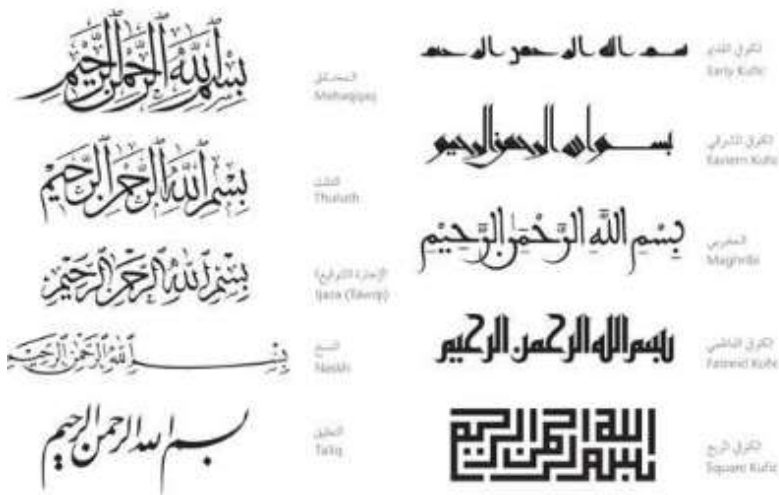 بِسْمِ اللَّهِ الرَّحْمَنِ الرَّحِيمِ
المحقق
Muhaqqaq
بِسْمِ اللَّهِ الرَّحْمَنِ الرَّحِيمِ
الثلث
Thuluth
بِسْمِ اللَّهِ الرَّحْمَنِ الرَّحِيمِ
الإجازة (التوقيع)
Ijaza (Tawqi)
بِسْمِ اللَّهِ الرَّحْمَنِ الرَّحِيمِ
النسخ
Naskh
بسم الله الرحمن الرحيم
التعليق
Ta'liq
بسم الله الرحمن الرحيم
الكوفي القديم
Early Kufic
بسم الله الرحمن الرحيم
الكوفي المشرقي
Eastern Kufic
بِسْمِ اللَّهِ الرَّحْمَنِ الرَّحِيمِ
المغربي
Maghribi
بسم الله الرحمن الرحيم
الكوفي الفاطمي
Fatimid Kufic
بسم الله الرحمن الرحيم
الكوفي المربع
Square Kufic